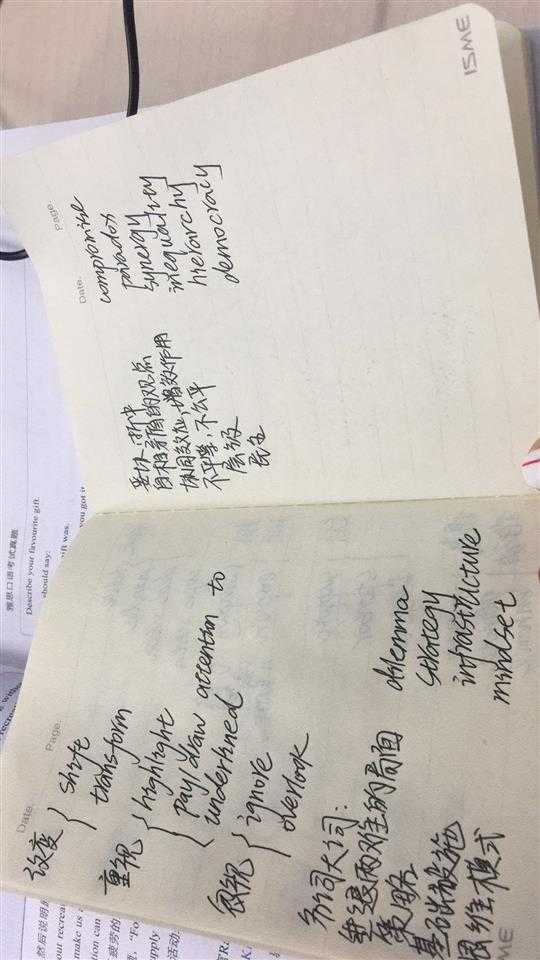 Date.
Page
改变 { shift
transform
重视 { highlight
pay/draw attention to
underlined
忽视 { ignore
overlook
名词大词:
进退两难的局面 dilemma
策略 strategy
基础设施 infrastructure
思维模式 mindset
Date.
Page
妥协,折中 compromise
自相矛盾的观点 paradox
协同效应,增效作用 synergy
不平等,不公平 inequality
层级 hierarchy
民主 democracy
ISME
雅思口语考试真题
Describe your favourite gift.
should say:
ift was.
you got it
然后说明
our recrea
make us
tion can
疲劳的
"Fo
upply
活动